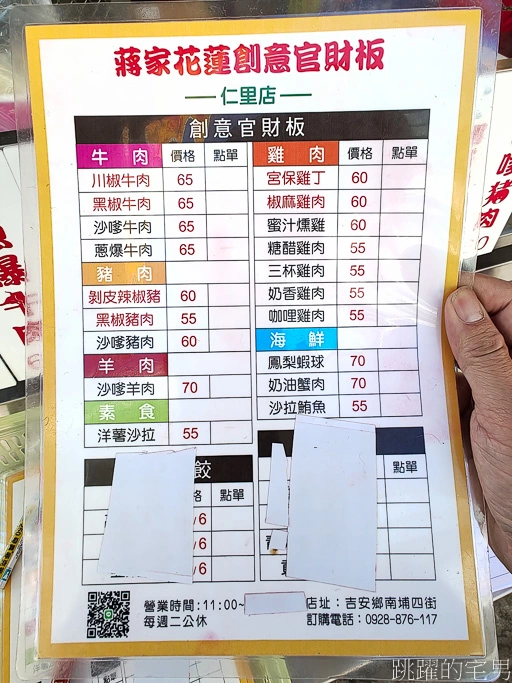 蔣家花蓮創意官財板
仁里店
創意官財板
牛肉 價格 點單
川椒牛肉 65
黑椒牛肉 65
沙嗲牛肉 65
蔥爆牛肉 65
豬肉
剝皮辣椒豬 60
黑椒豬肉 55
沙嗲豬肉 60
羊肉
沙嗲羊肉 70
素食
洋薯沙拉 55
雞肉 價格 點單
宮保雞丁 60
椒麻雞肉 60
蜜汁燻雞 60
糖醋雞肉 55
三杯雞肉 55
奶香雞肉 55
咖哩雞肉 55
海鮮
鳳梨蝦球 70
奶油蟹肉 70
沙拉鮪魚 55
餃
格 點單
/6
/6
/6
點單
營業時間:11:00~
每週二公休
店址:吉安鄉南埔四街
訂購電話:0928-876-117
嗲豬肉
爆牛肉
跳躍的宅男